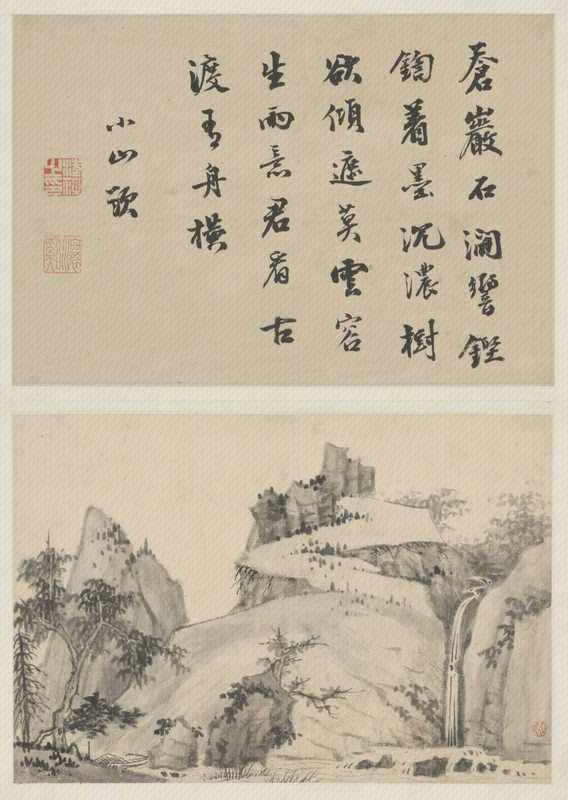 蒼巖石澗響鏗
鍧着墨沉濃樹
欲傾遮莫雲容
生雨意君看古
渡有舟橫
小山題